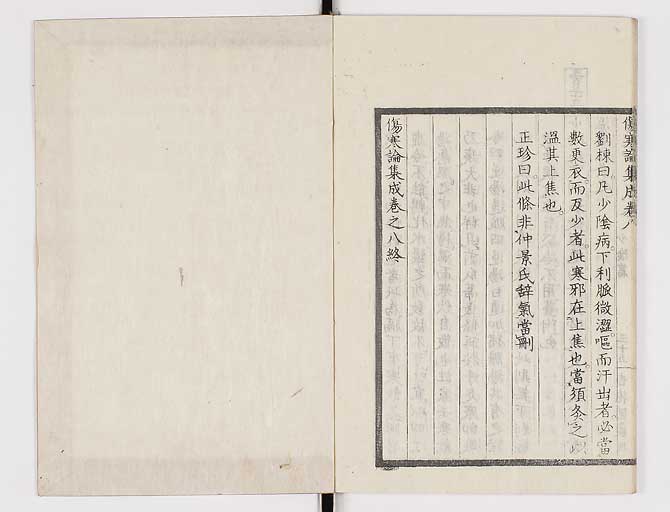 傷寒論集成卷八
劉棟曰凡少陰病下利脈微澀嘔而汗出者必當
數更衣而反少者此寒邪在上焦也當須灸之以
溫其上焦也
正珍曰此條非仲景氏辭氣當刪
傷寒論集成卷之八終